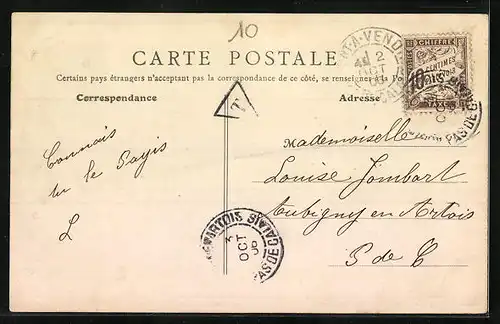 10
CARTE POSTALE
Certains pays étrangers n'acceptant pas la correspondance de ce côté, se renseigner à la Poste
Correspondance
Adresse
T
A-VEND
2
OCT
CHIFFRE
10 CENTIMES
TAXE
OCT
PAS DE C
Mademoiselle
Louise Jombart
Aubigny en Artois
P de C
Connais
tu le Pays
L
ARTOIS
OCT
PAS DE CALAIS